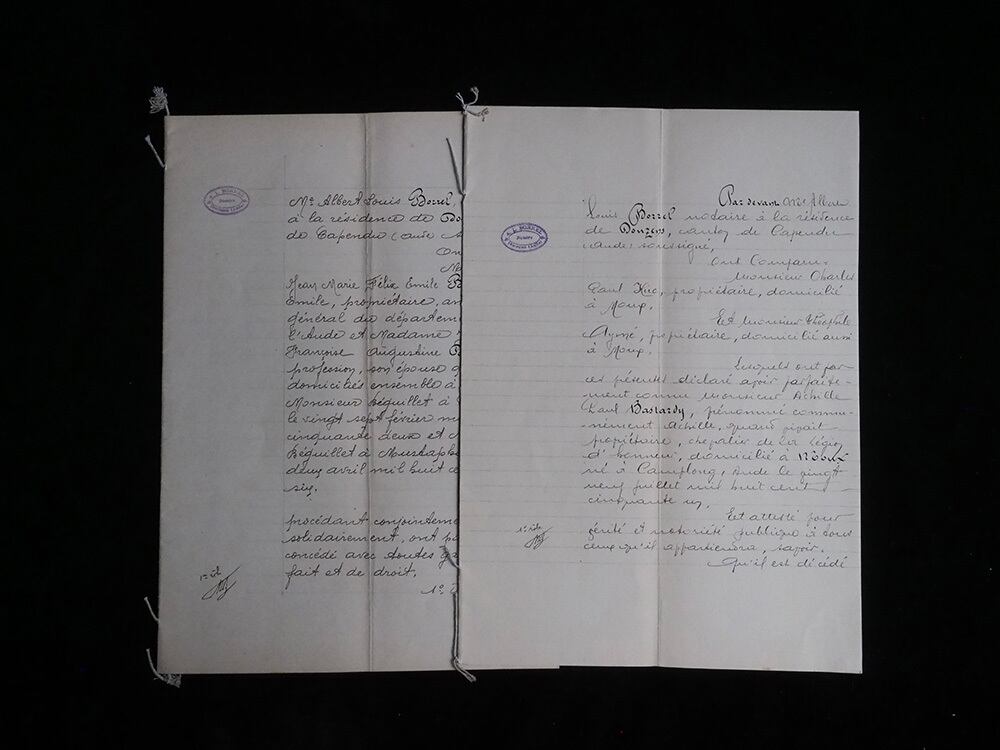 A. L. BORREL
Notaire
Mᵉ Albert Louis Borrel,
à la résidence de Do
de Capendu (Aude
Ont
Jean Marie Félix Emile
Emile, propriétaire, an
général du départem
l'Aude et Madame
Françoise Augustine B
profession, son épouse
domiciliés ensemble à
Monsieur Béquillet à
le vingt sept février m
cinquante deux et
Béquillet à Moustaph
deux avril mil huit ce
six.
procédant conjointeme
solidairement, ont
concédé avec toutes g
fait et de droit.
1º
1er rôle
A. L. BORREL
Notaire
Par devant Mᵉ Albert
Louis Borrel notaire à la résidence
de Douzens, canton de Capendu
(Aude) soussigné,
Ont Comparu:
Monsieur Charles
Paul Huc, propriétaire, domicilié
à Moux.
Et Monsieur Théophile
Aymé, propriétaire, domicilié aussi
à Moux.
Lesquels ont par
ces présentes déclaré avoir parfaite-
ment connu Monsieur Achille
Paul Bastardy, prénommé commu-
nément Achille, quand vivait
propriétaire, chevalier de la Légion
d'honneur, domicilié à Moux
né à Camplong, Aude le vingt
neuf juillet mil huit cent
cinquante un,
Et attesté pour
vérité et notoriété publique à tous
ceux qu'il appartiendra, savoir.
Qu'il est décédé
1er rôle